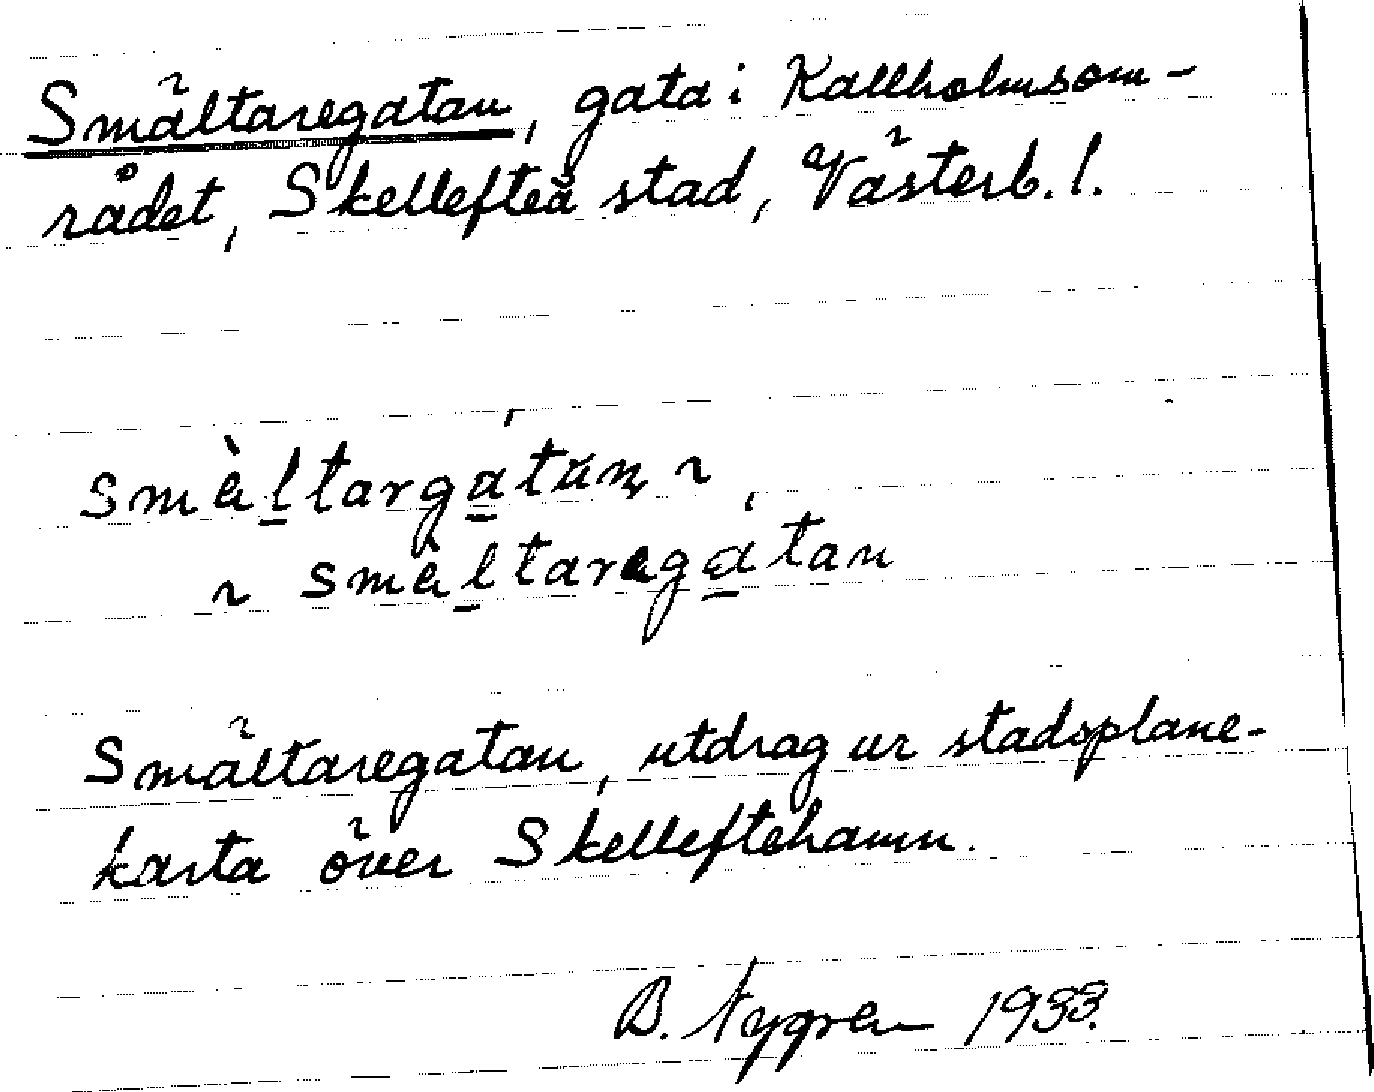 Smältaregatan, gata i Kallholmsom-
rådet, Skellefteå stad, Västerb. l.
smὲltargátan ~
~ smὲltaregátan
Smältaregatan, utdrag ur stadsplane-
karta över Skelleftehamn.
B. Nygren 1933.